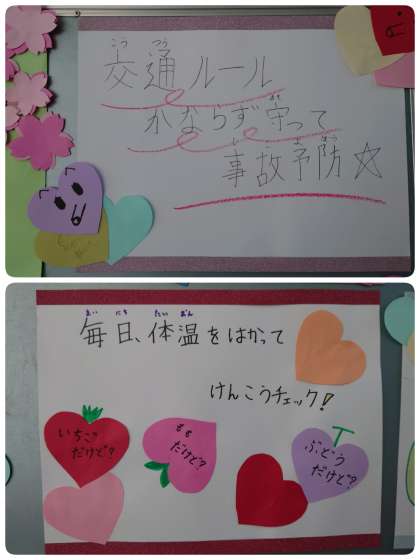 交通ルール
かならず守って
事故予防☆
毎日、体温をはかって
けんこうチェック!
いちご
だけど?
もも
だけど?
ぶどう
だけど?